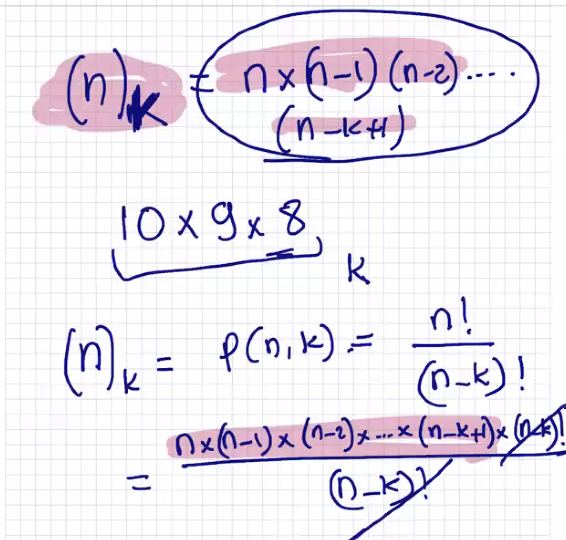 (n)k = n × (n-1) (n-2) ....
(n-k+1)
10 × 9 × 8
k
(n)k = P(n, k) = n! / (n-k)!
= n×(n-1)×(n-2)×...×(n-k+1)×(n-k)! / (n-k)!